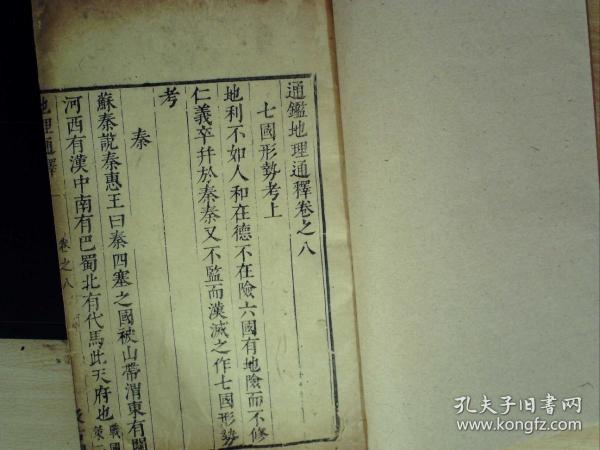 通鑑地理通釋卷之八
七國形勢考上
地利不如人和在德不在險六國有地險而不修
仁義卒并於秦秦又不監而漢滅之作七國形勢
考
秦
蘇秦說秦惠王曰秦四塞之國被山帶渭東有關
河西有漢中南有巴蜀北有代馬此天府也戰國
策
地理通釋
卷之八
孔夫子旧书网
www.kongfz.com